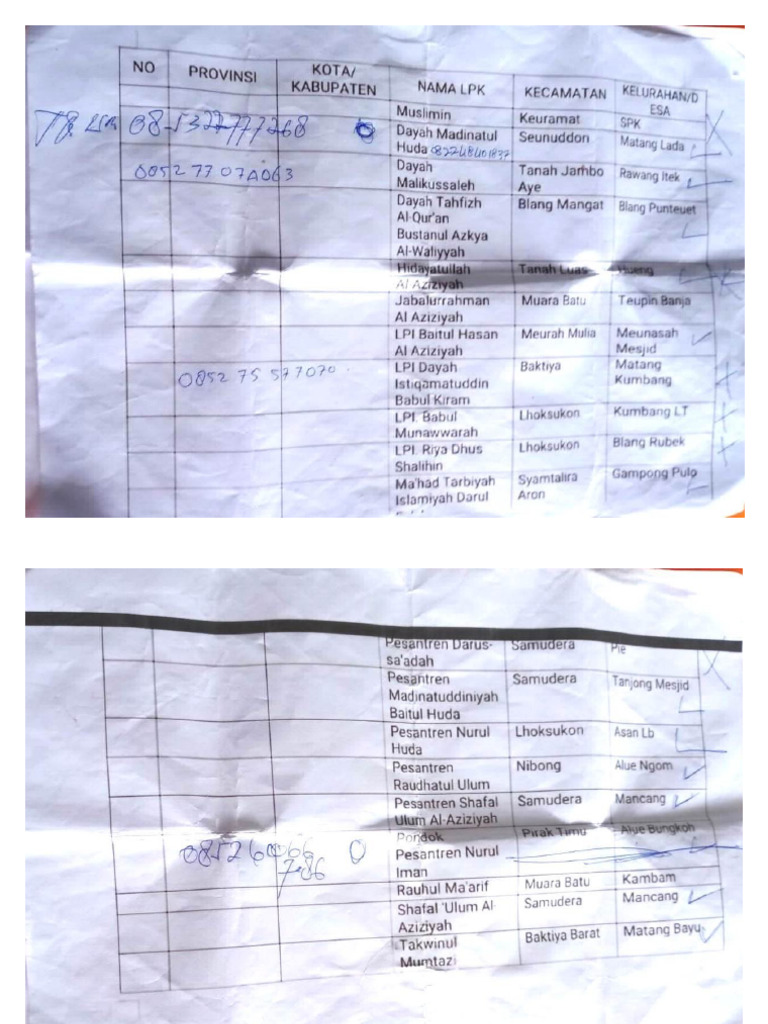 NO PROVINSI KOTA/ KABUPATEN NAMA LPK KECAMATAN KELURAHAN/D ESA
Muslimin Keuramat SPK
Dayah Madinatul Seunuddon Matang Lada
Huda 082268401837
Dayah Tanah Jambo Rawang Itek
Malikussaleh Aye
0852 77 07A063
Dayah Tahfizh Blang Mangat Blang Punteuet
Al-Qur'an
Bustanul Azkya
Al-Waliyyah
Hidayatullah Tanah Luas
Al Aziziyah
Jabalurrahman Muara Batu Teupin Banja
Al Aziziyah
LPI Baitul Hasan Meurah Mulia Meunasah
Al Aziziyah Mesjid
0852 75 577070 LPI Dayah Baktiya Matang
Istiqamatuddin Kumbang
Babul Kiram
LPI. Babul Lhoksukon Kumbang LT
Munawwarah
LPI. Riya Dhus Lhoksukon Blang Rubek
Shalihin
Ma'had Tarbiyah Syamtalira Gampong Pulo
Islamiyah Darul Aron
Pesantren Darus- Samudera Pie
sa'adah
Pesantren Samudera Tanjong Mesjid
Madinatuddiniyah
Baitul Huda
Pesantren Nurul Lhoksukon Asan Lb
Huda
Pesantren Nibong Alue Ngom
Raudhatul Ulum
Pesantren Shafal Samudera Mancang
Ulum Al-Aziziyah
Pondok Pirak Timu Alue Bungkoh
Pesantren Nurul
Iman
08526066
786
Rauhul Ma'arif Muara Batu Kambam
Shafal 'Ulum Al- Samudera Mancang
Aziziyah
Takwinul Baktiya Barat Matang Bayu
Mumtazi